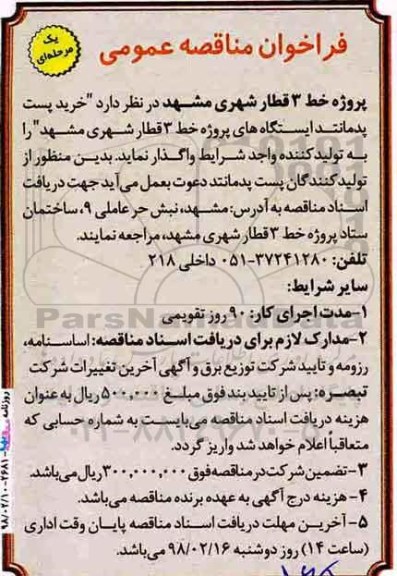 فراخوان مناقصه عمومی
یک
مرحله‌ای
پروژه خط ۳ قطار شهری مشهد در نظر دارد "خرید پست
پدمانتد ایستگاه های پروژه خط ۳ قطار شهری مشهد" را
به تولیدکننده واجد شرایط واگذار نماید. بدین منظور از
تولیدکنندگان پست پدمانتد دعوت بعمل می آید جهت دریافت
اسناد مناقصه به آدرس: مشهد، نبش حر عاملی ۹، ساختمان
ستاد پروژه خط ۳ قطار شهری مشهد، مراجعه نمایند.
تلفن: ۳۷۲۴۱۲۸۰-۰۵۱ داخلی ۲۱۸
سایر شرایط:
۱-مدت اجرای کار: ۹۰ روز تقویمی
۲-مدارک لازم برای دریافت اسناد مناقصه: اساسنامه،
رزومه و تایید شرکت توزیع برق و آگهی آخرین تغییرات شرکت
تبصره: پس از تایید بند فوق مبلغ ۵۰۰,۰۰۰ ریال به عنوان
هزینه دریافت اسناد مناقصه می‌بایست به شماره حسابی که
متعاقباً اعلام خواهد شد واریز گردد.
۳-تضمین شرکت در مناقصه فوق ۳۰۰,۰۰۰,۰۰۰ ریال می‌باشد.
۴- هزینه درج آگهی به عهده برنده مناقصه می‌باشد.
۵- آخرین مهلت دریافت اسناد مناقصه پایان وقت اداری
(ساعت ۱۴) روز دوشنبه ۹۸/۰۲/۱۶ می‌باشد.
ParsNamadData